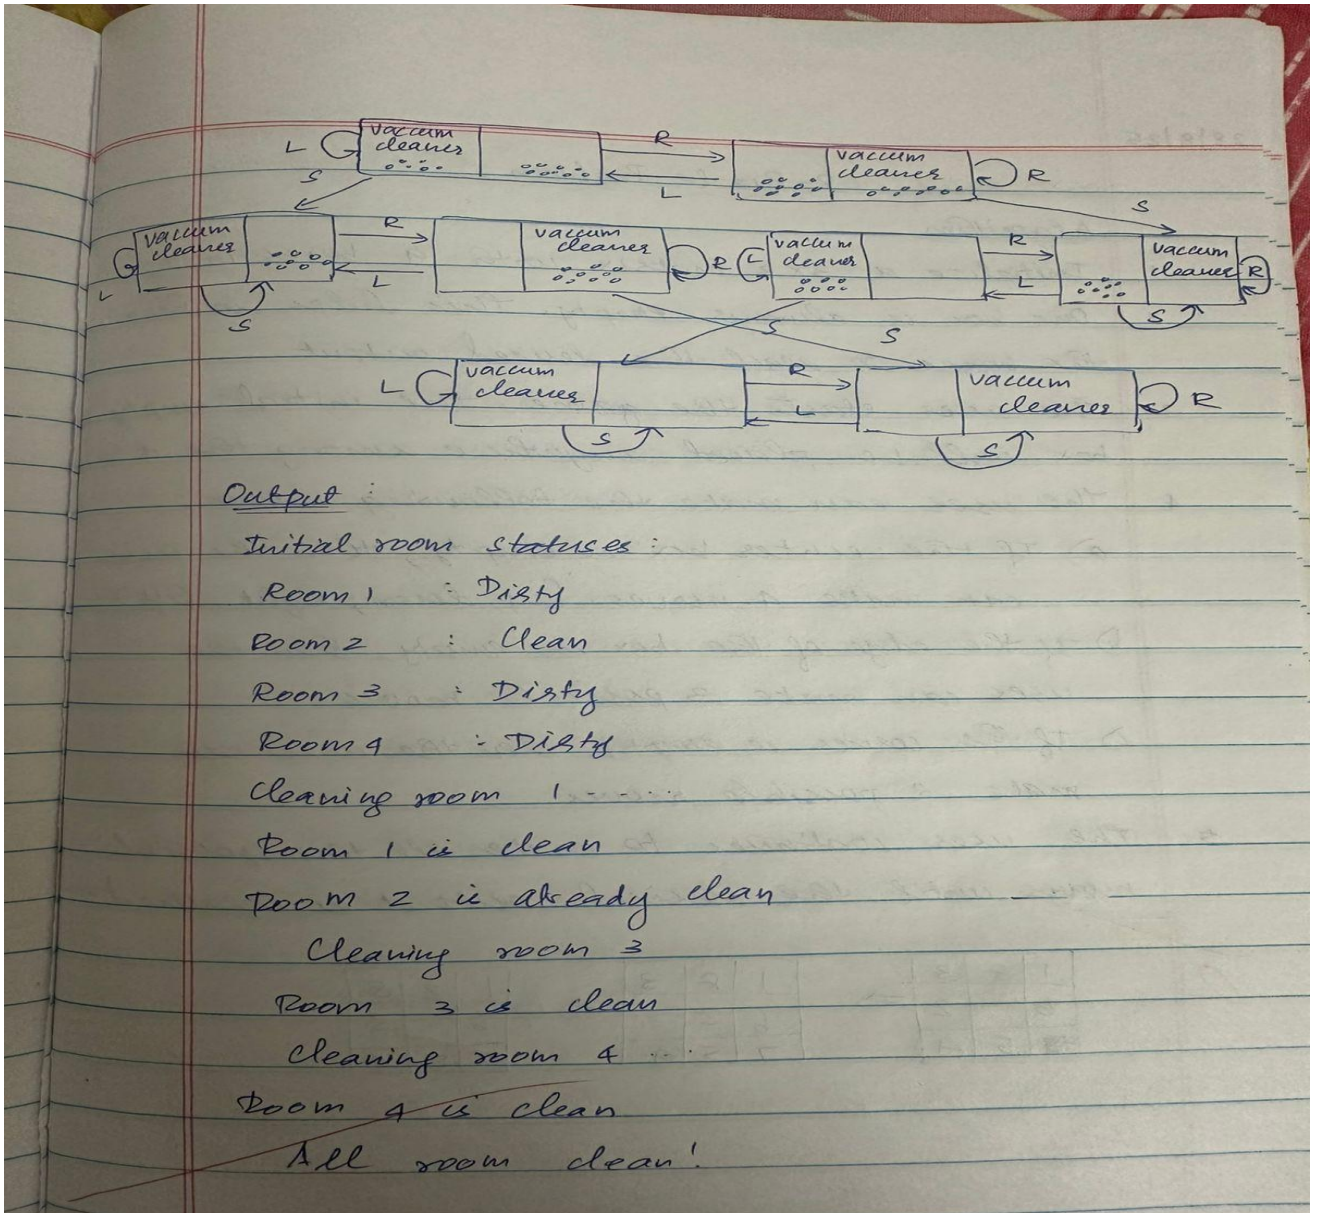 vaccum
cleaner
L
R
L
vaccum
cleaner
R
S
S
vaccum
cleaner
L
R
L
S
vaccum
cleaner
R
L
vaccum
cleaner
R
L
vaccum
cleaner
R
S
S
S
L
vaccum
cleaner
R
L
S
vaccum
cleaner
R
S
Output :
Initial room statuses :
Room 1 : Dirty
Room 2 : Clean
Room 3 : Dirty
Room 4 : Dirty
Cleaning room 1 - - - . .
Room 1 is clean
Room 2 is already clean
Cleaning room 3
Room 3 is clean
Cleaning room 4 ...
Room 4 is clean
All room clean!